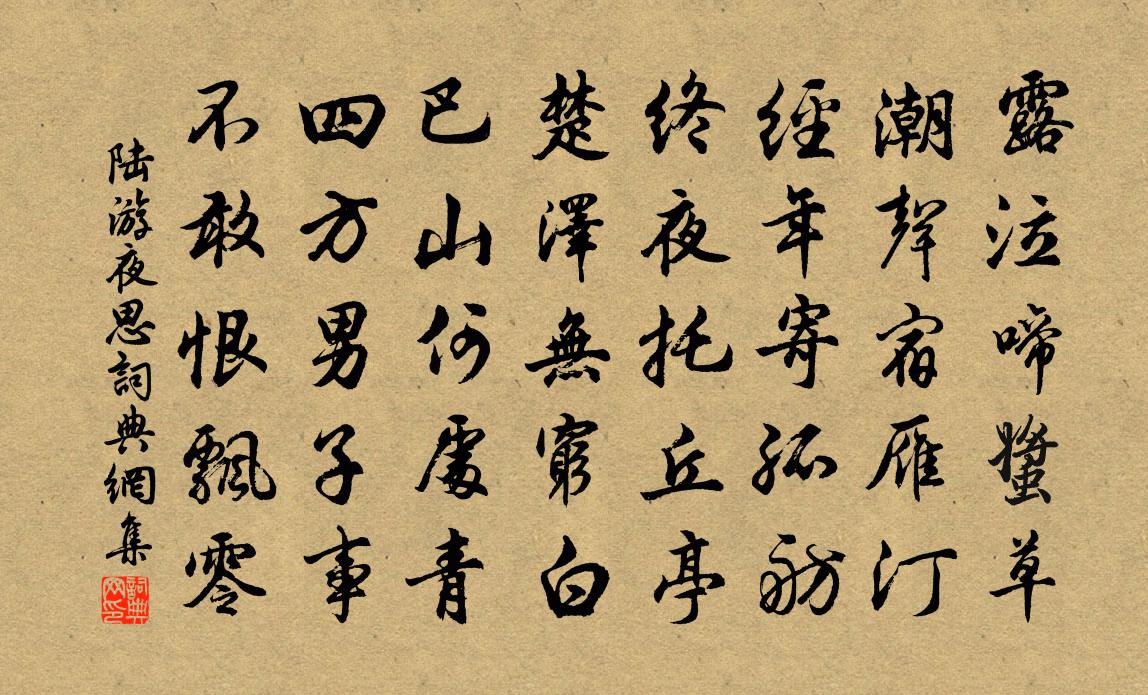 露泣啼螿草
潮聲宿雁汀
經年寄孤舫
終夜托丘亭
楚澤無窮白
巴山何處青
四方男子事
不敢恨飄零
陆游夜思詞典網集
詞典网印